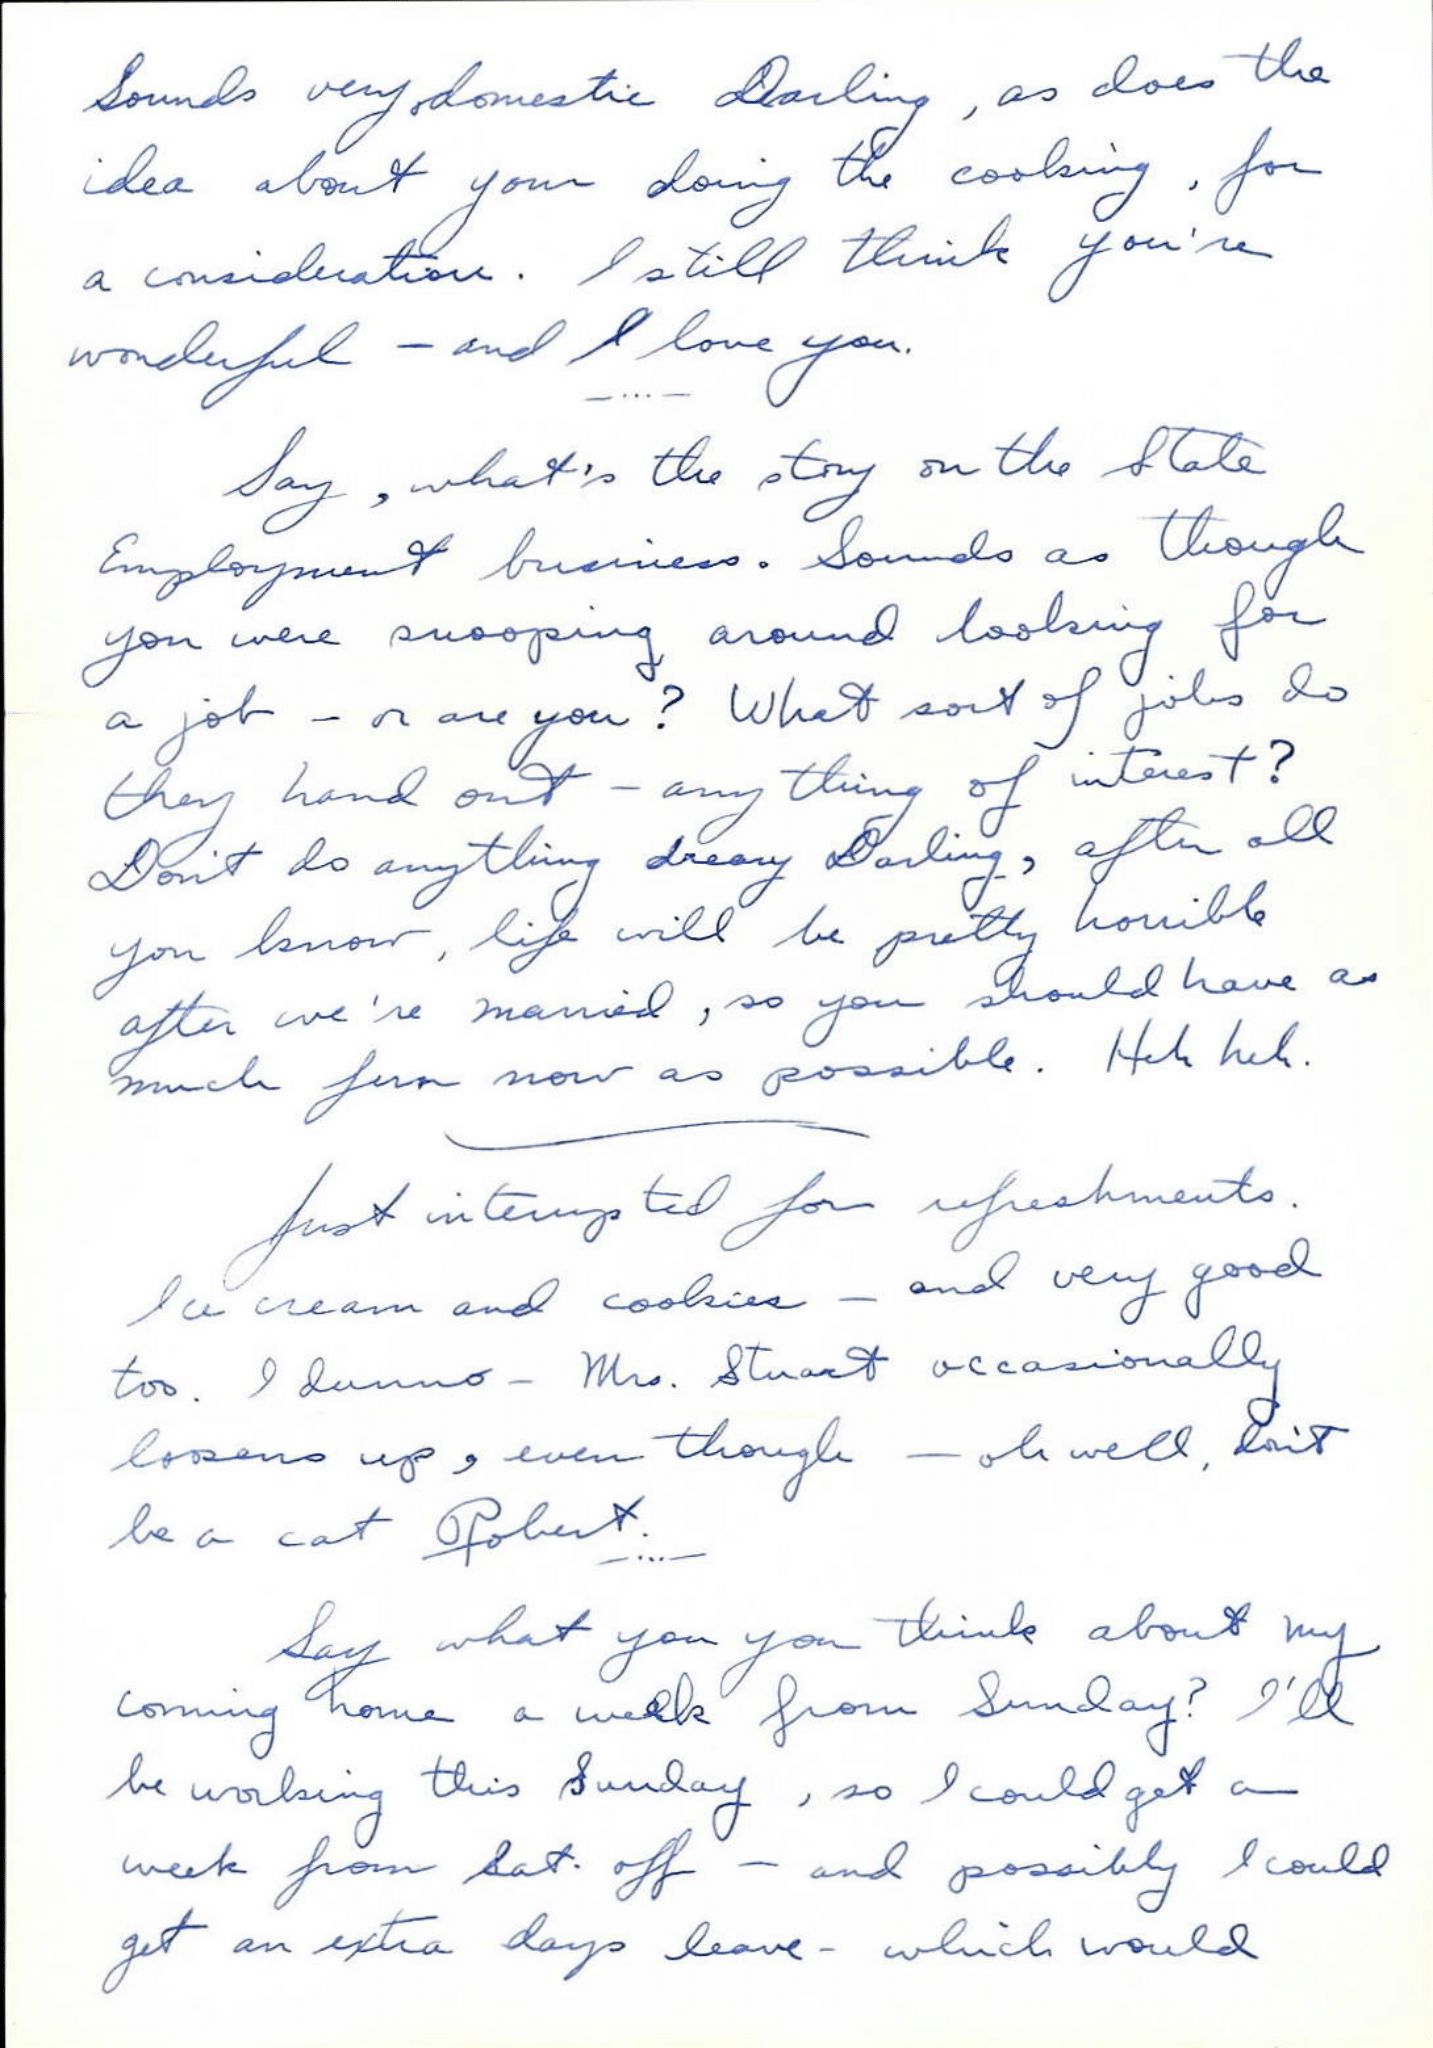 Sounds very domestic Darling, as does the
idea about your doing the cooking, for
a consideration. I still think you're
wonderful - and I love you.
-...-
Say, what's the story on the State
Employment business. Sounds as though
you were snooping around looking for
a job - or are you? What sort of jobs do
they hand out - anything of interest?
Don't do anything dreary Darling, after all
you know, life will be pretty horrible
after we're married, so you should have as
much fun now as possible. Heh heh.
Just interrupted for refreshments.
Ice cream and cookies - and very good
too. I dunno - Mrs. Stuart occasionally
loosens up, even though - oh well, don't
be a cat Robert.
-...-
Say what you you think about my
coming home a week from Sunday? I'll
be working this Sunday, so I could get a
week from Sat. off - and possibly I could
get an extra days leave - which would